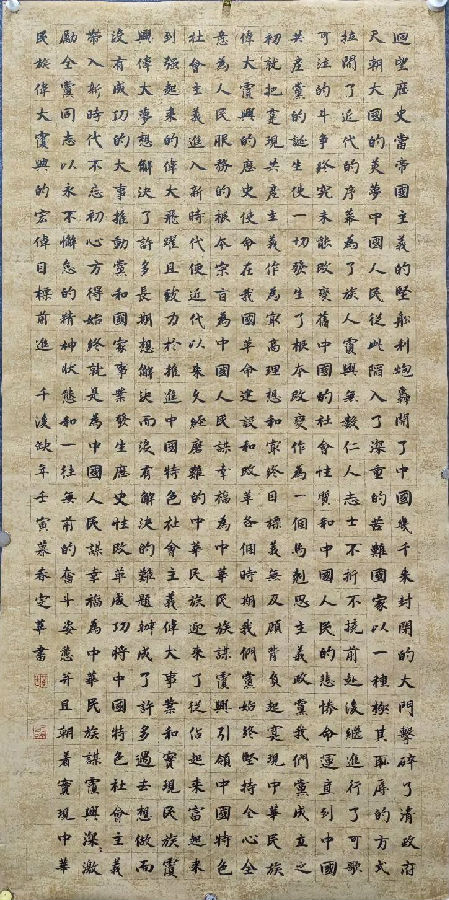 迴望歷史當帝國主義的堅船利炮轟開了中國幾千來封閉的大門擊碎了清政府
天朝大國的美夢中國人民從此陷入了深重的苦難國家以一種極其恥辱的方式
拉開了近代的序幕為了族人復興無數仁人志士不折不撓前赴後繼進行了可歌
可泣的斗爭終究未能改變舊中國的社會性質和中國人民的悲慘命運直到中國
共產黨的誕生使一切發生了根本改變作為一個馬刺思主義政黨我們黨成立之
初就把實現共產主義作為最高理想和最終目標義無反顧背負起實現中華民族
偉大復興的歷史使命在我國革命建設和改革各個時期我們黨始終堅持全心全
意為人民服務的根本宗旨為中國人民謀幸福為中華民族謀復興引領中國特色
社會主義進入新時代使近代以來久經磨難的中華民族迎來了從佔起來富起來
到強起來的偉大飛躍且致力於推進中國特色社會主義偉大事業和實現民族復
興偉大夢想解決了許多長期想解決而沒有解決的難題辦成了許多過去想做而
沒有成功的大事推動黨和國家事業發生歷史性改革成功將中國特色社會主義
帶入新時代不忘初心方得始終就是為中國人民謀幸福為中華民族謀復興深激
勵全黨同志以永不懈怠的精神狀態和一往無前的奮斗姿態并且朝着實現中華
民族偉大復興的宏偉目標前進 年壬寅春定華書